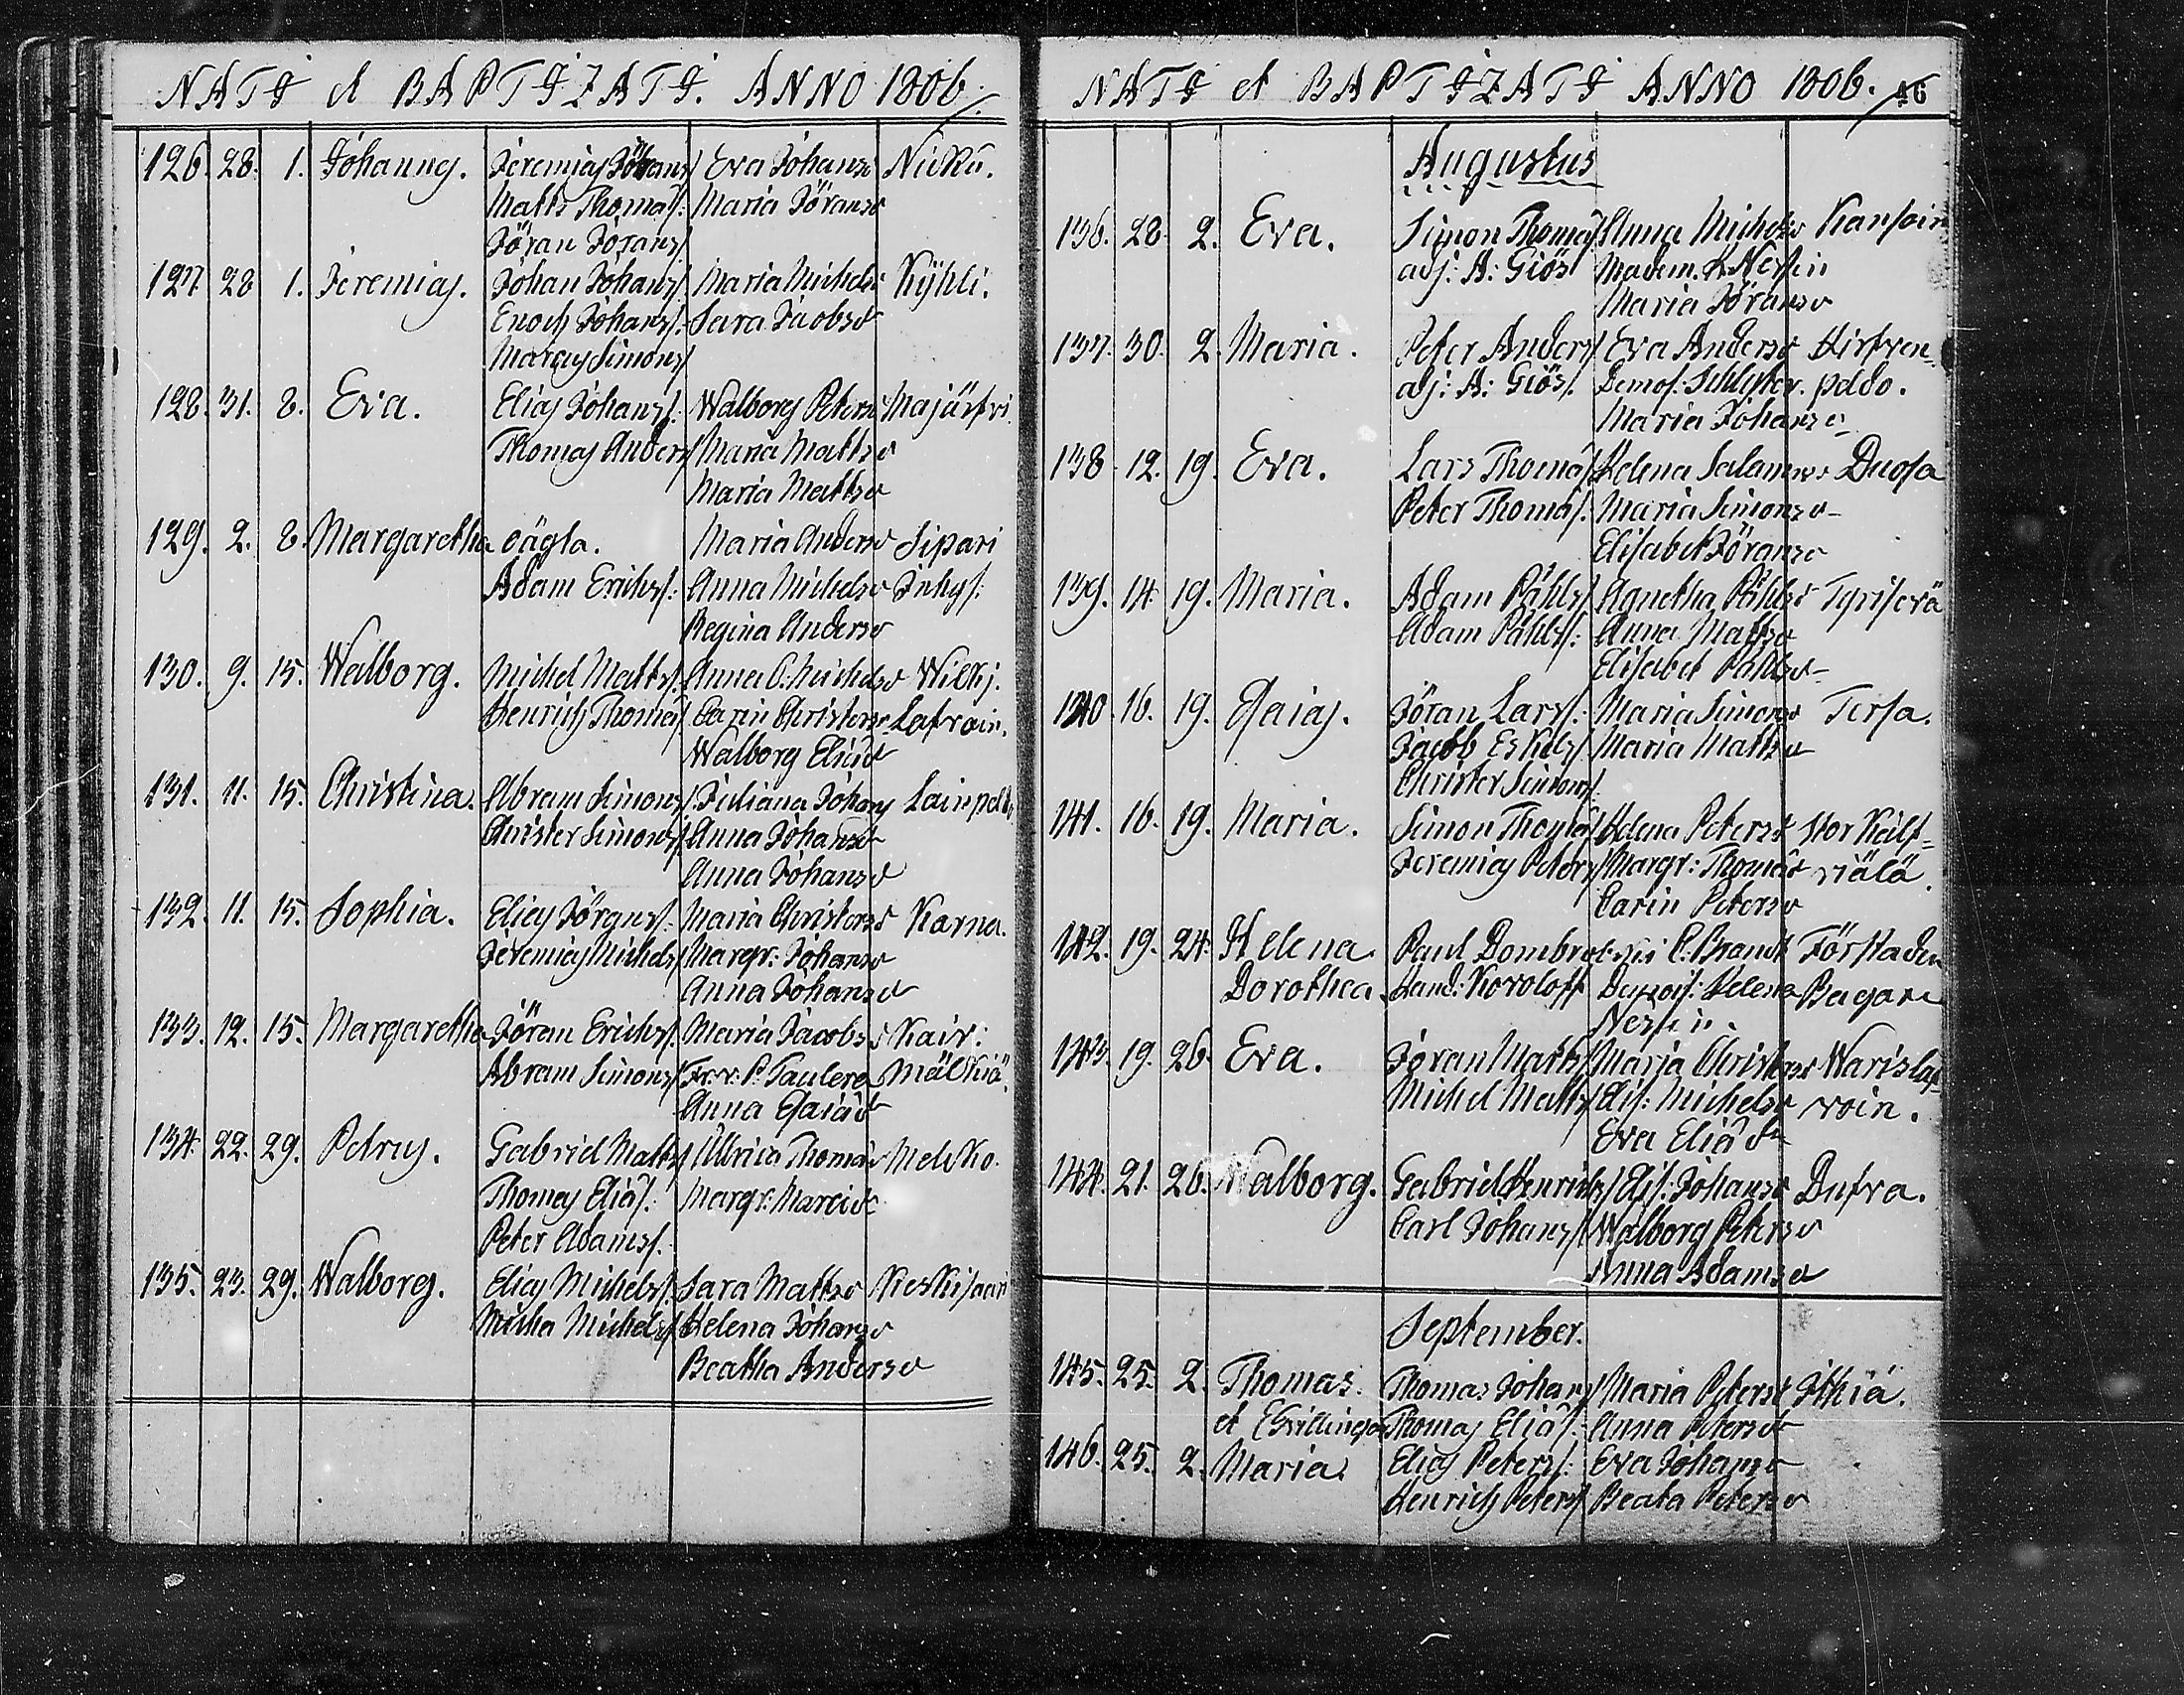 NATI et BAPTIZATI. ANNO 1806.
126. 28. 1. Johannes. Jeremias Johans/ Eva Johansd Nickū.
Matts Thomas/: Maria Jöransd
Jöran Jorans/
127 28 1. Jeremias. Johan Johans/: Maria Michelsd Kÿhli.
Enoch Johans/: Sara Jacobsd
Marcus Simons/
128. 31. 8. Eva. Elias Johans/: Walborg Petersd Majärfvi
Thomas Anders/ Maria Mattsd
Maria Mattsd
129. 2. 8. Margaretha oägta. Maria Andersd Sipari
Adam Erichs/: Anna Michelsd Inhys:
Regina Andersd
130. 9. 15. Walborg. Michel Matts/: Anna C: Michelsd Wilkj.
Henrich Thomas/ Carin Christersd Lafvoin.
Walborg Eliæd
131. 11. 15. Christina. Abram Simons/ Juliana Johans
Christer Simons/ Anna Johansd
Anna Johansd
132. 11. 15. Sophia. Elias Jörgens/: Maria Christersd Karna.
Jeremias Michels/ Margr: Johansd
Anna Johansd
133. 12. 15. Margaretha Jöran Erichs/. Maria Jacobsd Kaiv:
Abram Simons/ P: Taulere Mälkiä.
Anna Esaiæd
134. 22. 29. Petrus. Gabriel Matts/ Ulrica Thomæd Melkko.
Thomas Eliæ/: Margr: Marcid
Peter Adams/.
135. 23. 29. Walborg. Elias Michels/. Sara Mattsd Keskisaari
Micha Michels/ Helena Johansd
Beatha Andersd
NATI et BAPTIZATI ANNO 1806. 46
Augustus
136. 28. 2. Eva. Simon Thomas/ Anna Michelsd Kansoin
adj: A: Giös Madem.
Maria Jöransd
137. 30. 2. Maria. Peter Anders/ Eva Andersd Hirfven=
adj: A: Giös/. Demos: Schlyter. pddo.
Maria Johansd
138 12. 19. Eva. Lars Thomas/ Helena Salamonsd Duosa
Peter Thomas/: Maria Simonsd
Elisabet Jöransd
139. 14 19. Maria. Adam Påhls/ Agnetha Påhlsd Tyriserä
Adam Påhls/: Anna Mattsd
Elisabet Påhlsd
140. 16. 19. Esaias. Jöran Lars/: Maria Simonsd Tersa.
Jacob Eskels/ Maria Mattsd
Christer Simons/.
141. 16. 19. Maria. Simon Thomas/ Helena Petersd Stor Kälf=
Jeremias Peters/ Margr: Thomæd viälä.
Carin Petersd
142. 19. 24. Helena Paul Dombrowski C: Brandt Förstaden
Dorothea. Hand: Koroloff Demois: Helena Bagare
143. 19. 26. Eva. Jöran Matts/ Maria Christersd Warislaf=
Michel Matts/ Elis: Michelsd voin.
Eva Eliæd
144. 21. 26. Walborg. Gabriel Henrichs/ Elis: Johansd Dufva.
Carl Johans/ Walborg Petersd
Anna Adamsd
September.
145. 25. 2. Thomas. Thomas Johans/ Maria Petersd Ithiä.
et (Tvillingar Thomas Eliæ/: Anna Petersd
146. 25. 2. Maria. Elias Peters/: Eva Johansd
Henrich Peters/ Beata Petersd